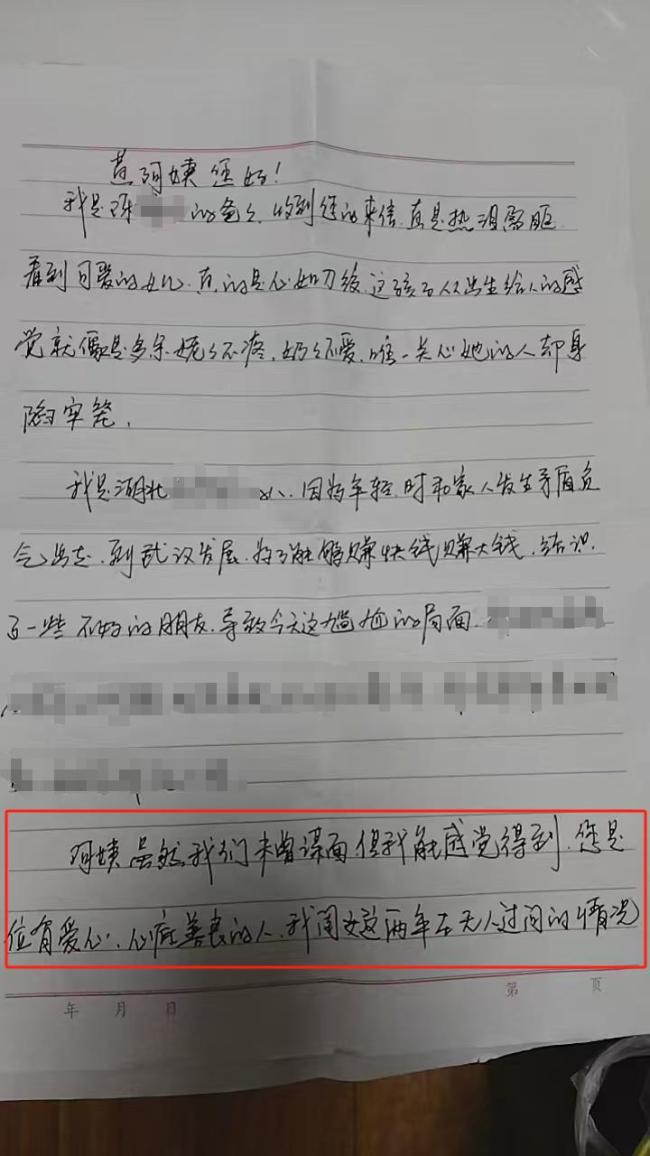 黄阿姨您好！
我是陈 的爸爸，收到您的来信，真是热泪盈眶
看到可爱的女儿，真的是心如刀绞，这孩子从出生给人的感
觉就像是多余，姥姥不疼，奶奶不爱，唯一关心她的人却身
陷牢笼，
我是湖北 人，因为年轻时和家人发生矛盾负
气出走，到武汉发展，为了能够赚快钱赚大钱，结识
了一些不好的朋友，导致今天这尴尬的局面，
阿姨虽然我们未曾谋面但我能感觉得到，您是
位有爱心，心底善良的人，我闺女这两年在无人过问的情况
年 月 日
第 页